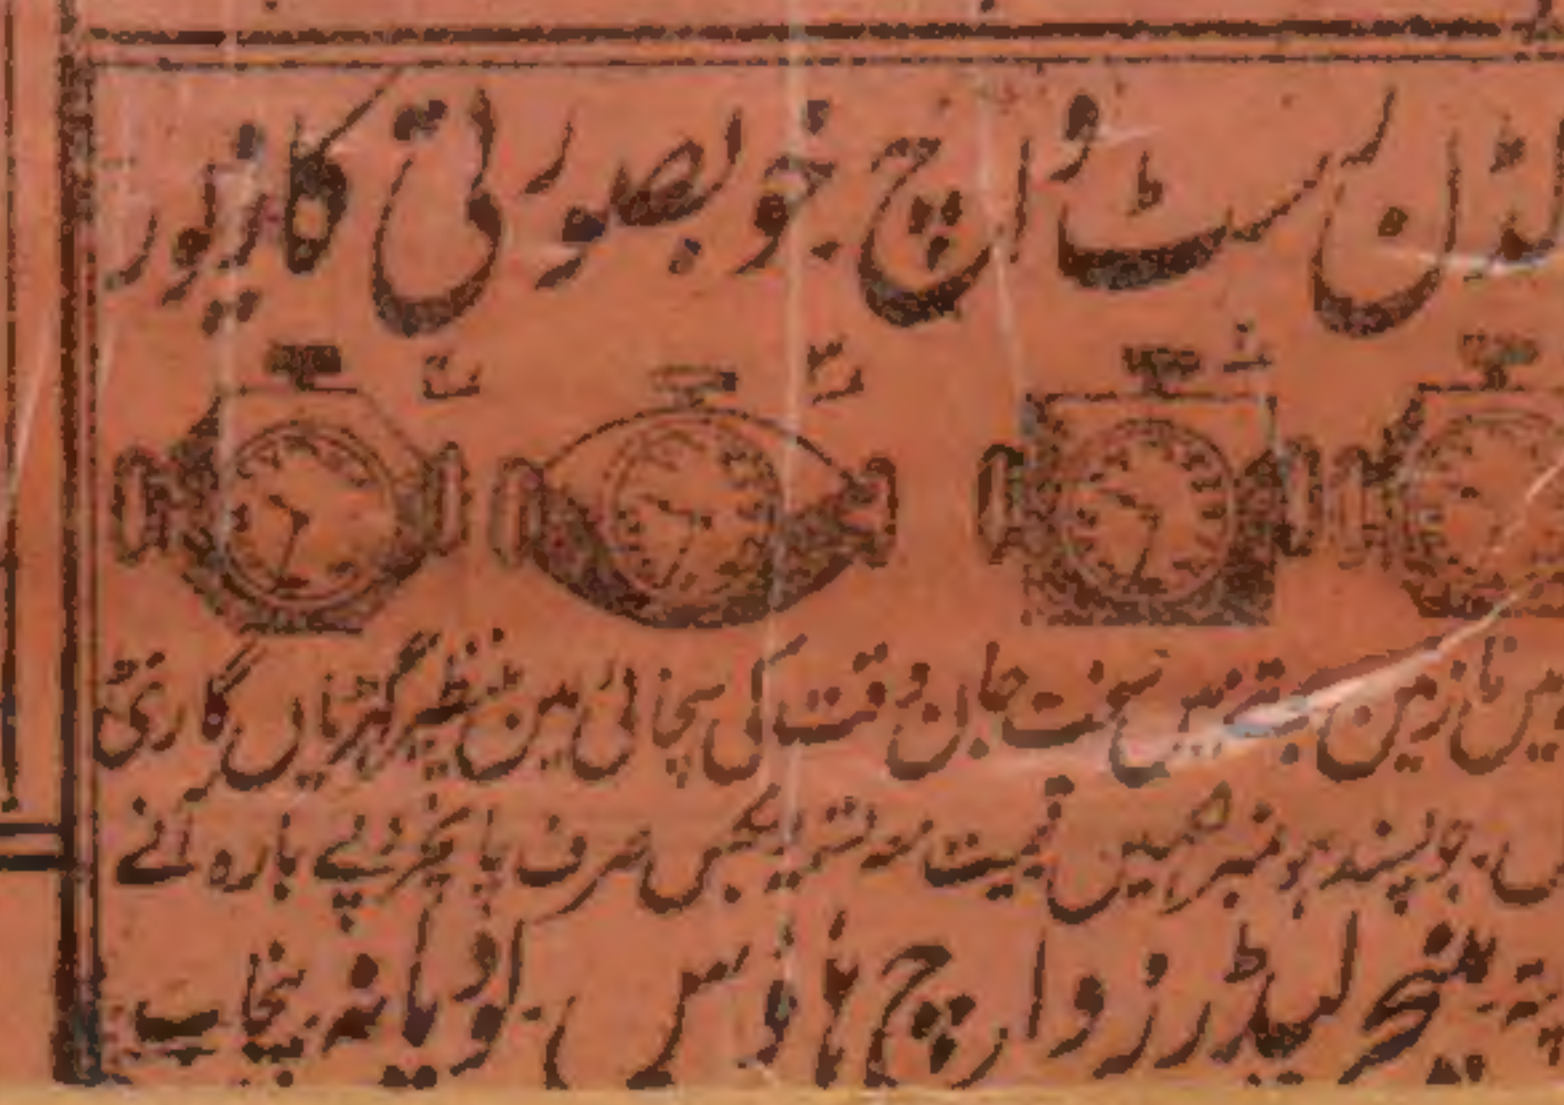 لڈن رسٹ واچ خوبصورتی کا زیور
۱ ۲ ۳
میں نازمین بیتریس سخت جان وقت کی سچائی میں بےنظیر گھڑیاں گارنٹی
جو پسند ہو نمبر لکھیں قیمت معہ تسمہ و بکس صرف پانچ روپے بارہ آنے
پتہ منیجر لیڈرز واچ ہاؤس لودیانہ پنجاب